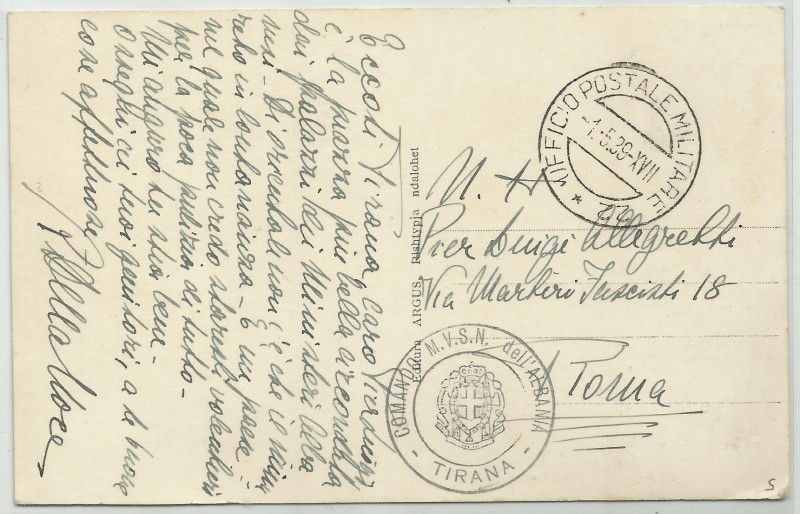 Eccoti Tirana, caro Pierluigi
È la piazza più bella circondata
dai palazzi dei Ministeri alba
nesi - Di orientale non c'è che il mina
reto in lontananza - È un paese
nel quale non credo staresti volentieri
per la poca pulizia di tutto -
Mi auguro tu stia bene -
Ossequi ai tuoi genitori, a te buone
cose affettuose
Della
Editura ARGUS. Rishtypja ndalohet
UFFICIO POSTALE MILITARE
-1.5.39-XVII
* 22
N. H.
Pier Luigi Allegretti
Via Martiri Fascisti 18
Roma
COMANDO M.V.S.N. dell'ALBANIA
- TIRANA -
2
S